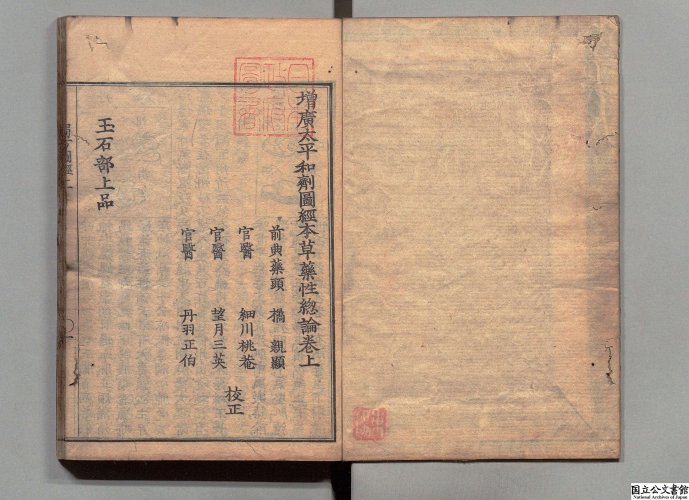 增廣太平和劑圖經本草藥性總論卷上
前典藥頭 橘 親顯
官醫 細川桃菴
官醫 望月三英
官醫 丹羽正伯
校正
玉石部上品
国立公文書館
National Archives of Japan